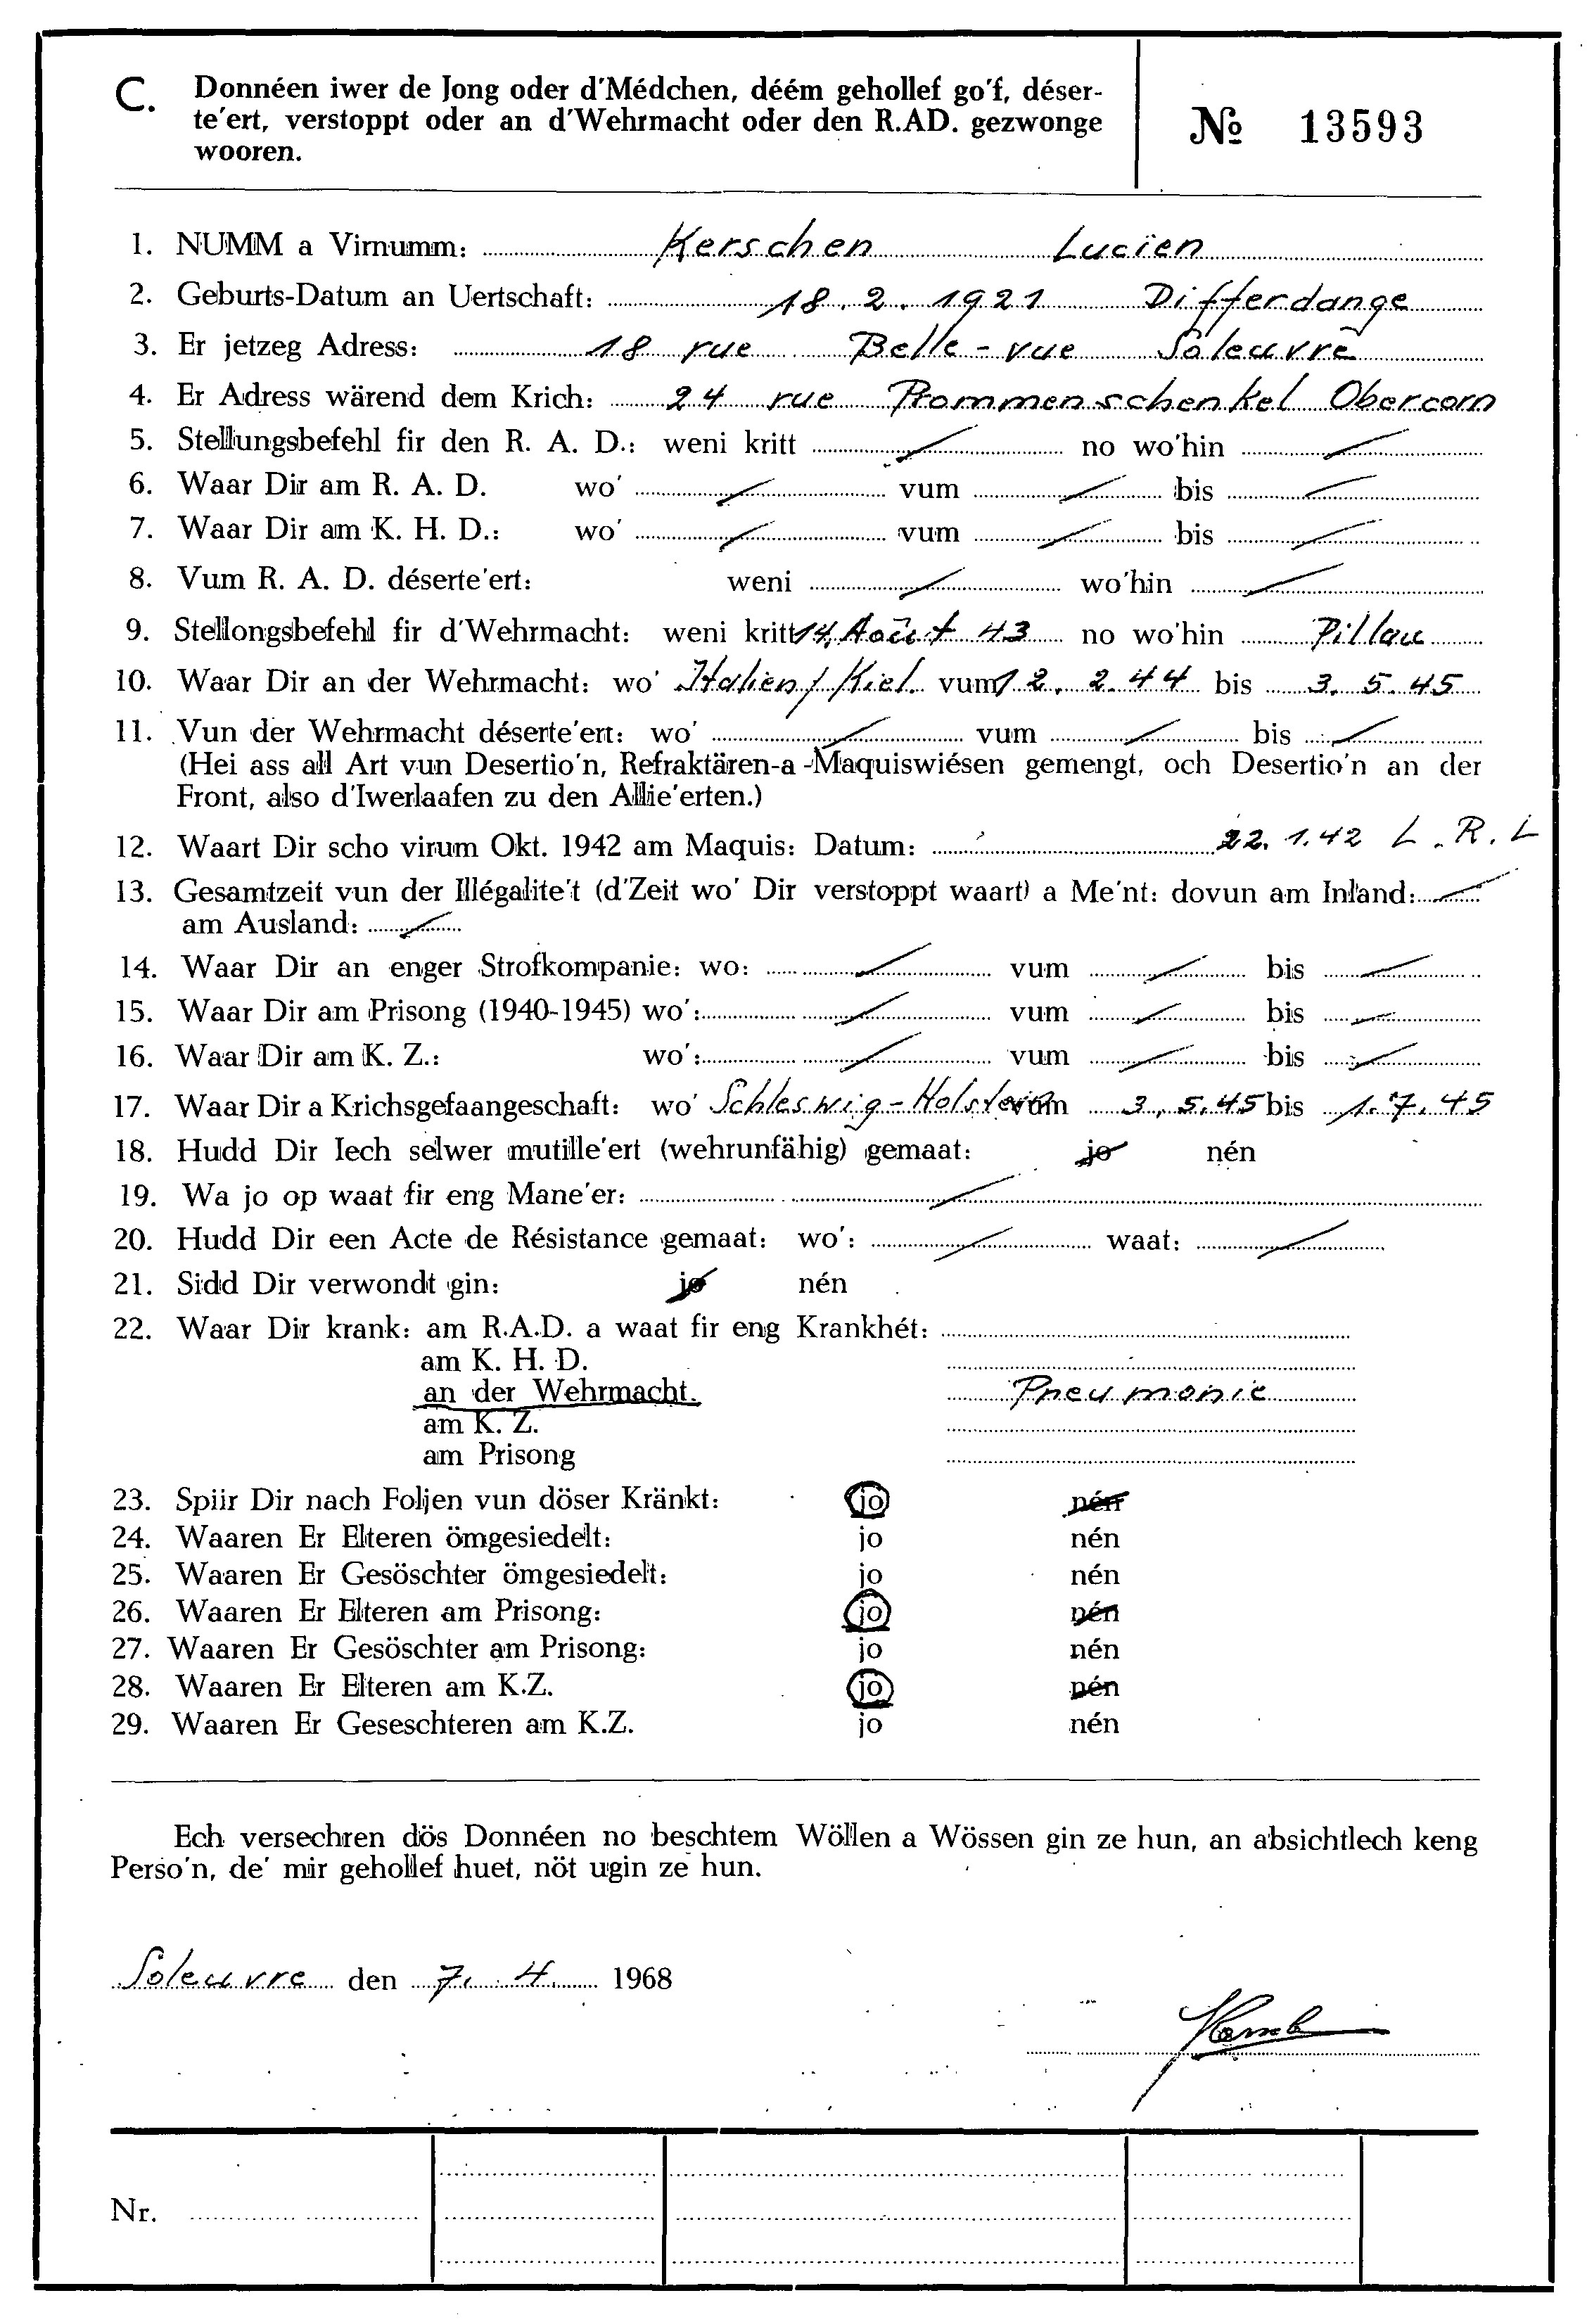 C. Donnéen iwer de Jong oder d'Médchen, déém gehollef go'f, déser-
te'ert, verstoppt oder an d'Wehrmacht oder den R.AD. gezwonge
wooren.
№ 13593
1. NUMM a Virnumm: Kerschen Lucien
2. Geburts-Datum an Uertschaft: 18.2.1921 Differdange
3. Er jetzeg Adress: 18 rue Belle-vue Soleuvre
4. Er Adress wärend dem Krich: 24 rue Prommenschenkel Obercorn
5. Stellungsbefehl fir den R. A. D.: weni kritt no wo'hin
6. Waar Dir am R. A. D. wo' vum bis
7. Waar Dir am K. H. D.: wo' vum bis
8. Vum R. A. D. déserte'ert: weni wo'hin
9. Stellongsbefehl fir d'Wehrmacht: weni kritt 14, Août 43 no wo'hin Pillau
10. Waar Dir an der Wehrmacht: wo' Italien/Kiel. vum 12. 2.44 bis 3. 5.45
11. Vun der Wehrmacht déserte'ert: wo' vum bis
(Hei ass all Art vun Desertio'n, Refraktären-a-Maquiswiésen gemengt, och Desertio'n an der
Front, also d'Iwerlaafen zu den Allie'erten.)
12. Waart Dir scho virum Okt. 1942 am Maquis: Datum: 22. 1.42 L.R.L
13. Gesamtzeit vun der Illégalite't (d'Zeit wo' Dir verstoppt waart) a Me'nt: dovun am Inland:
am Ausland:
14. Waar Dir an enger Strofkompanie: wo: vum bis
15. Waar Dir am Prisong (1940-1945) wo': vum bis
16. Waar Dir am K. Z.: wo': vum bis
17. Waar Dir a Krichsgefaangeschaft: wo' Schleswig-Holstein vum 3, 5.45 bis 1.7.45
18. Hudd Dir Iech selwer mutille'ert (wehrunfähig) gemaat: jo nén
19. Wa jo op waat fir eng Mane'er:
20. Hudd Dir een Acte de Résistance gemaat: wo': waat:
21. Sidd Dir verwondt gin: jo nén
22. Waar Dir krank: am R.A.D. a waat fir eng Krankhét:
am K. H. D.
an der Wehrmacht. Pneumonie
am K. Z.
am Prisong
23. Spiir Dir nach Foljen vun döser Kränkt: jo nén
24. Waaren Er Elteren ömgesiedelt: jo nén
25. Waaren Er Gesöschter ömgesiedelt: jo nén
26. Waaren Er Elteren am Prisong: jo nén
27. Waaren Er Gesöschter am Prisong: jo nén
28. Waaren Er Elteren am K.Z. jo nén
29. Waaren Er Geseschteren am K.Z. jo nén
Ech versechren dös Donnéen no beschtem Wöllen a Wössen gin ze hun, an absichtlech keng
Perso'n, de' mir gehollef huet, nöt ugin ze hun.
Soleuvre den 7. 4. 1968
Nr.